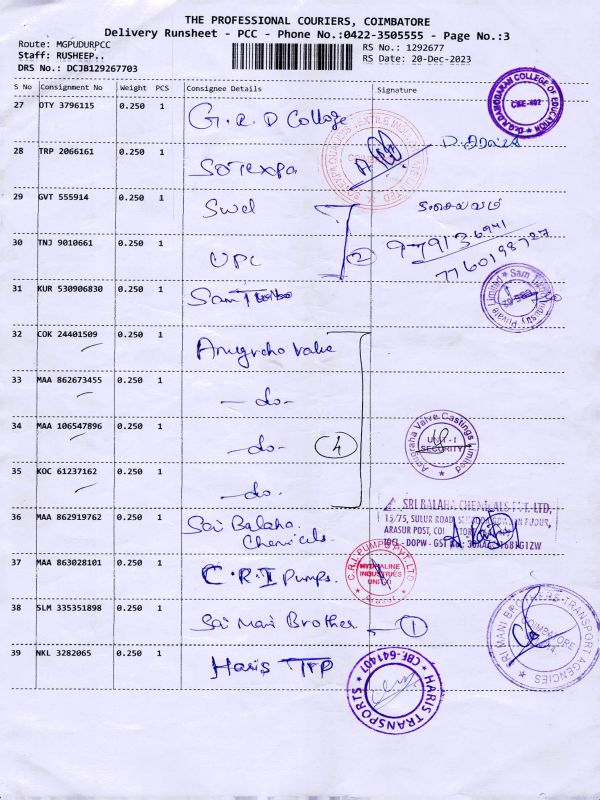 THE PROFESSIONAL COURIERS, COIMBATORE
Delivery Runsheet - PCC - Phone No.:0422-3505555 - Page No.:3
Route: MGPUDURPCC RS No.: 1292677
Staff: RUSHEEP.. RS Date: 20-Dec-2023
DRS No.: DCJB129267703
S No Consignment No Weight PCS Consignee Details Signature
27 OTY 3796115 0.250 1 G.R.D College
28 TRP 2066161 0.250 1 Sotexpa
29 GVT 555914 0.250 1 Swel
30 TNJ 9010661 0.250 1 UPC 2
97913 6941
7760198727
31 KUR 530906830 0.250 1 Sam Turbo
32 COK 24401509 0.250 1 Anugraha Valve
33 MAA 862673455 0.250 1 -do-
34 MAA 106547896 0.250 1 -do- 4
Anugraha Valve Castings Limited
UNIT-I
SECURITY
35 KOC 61237162 0.250 1 -do-
36 MAA 862919762 0.250 1 Sai Balaha
Chemicals.
SRI BALAHA CHEMICALS PVT. LTD,
15/75, SULUR ROAD,
ARASUR POST,
IOCL - DOPW - GST
37 MAA 863028101 0.250 1 C.R.I Pumps.
C.R.I. PUMPS PVT. LTD
HYDRALINE
INDUSTRIES
Arasur
38 SLM 335351898 0.250 1 Sai Mani Brother 1
SRI MANI BROTHERS TRANSPORT AGENCIES
COIMBATORE
39 NKL 3282065 0.250 1 Haris TTP
HARIS TRANSPORTS
CBE-641407